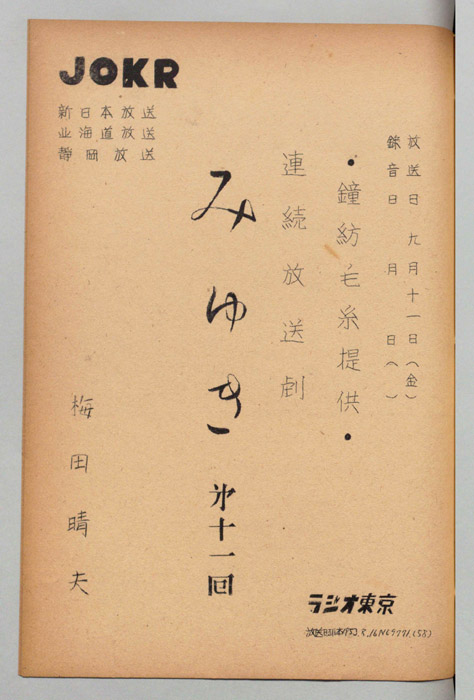 JOKR
新日本放送
北海道放送
静岡放送
放送日 九月十一日(金)
録音日 月 日( )
・鐘紡毛糸提供・
連続放送劇
みゆき 第十一回
梅田晴夫
ラジオ東京